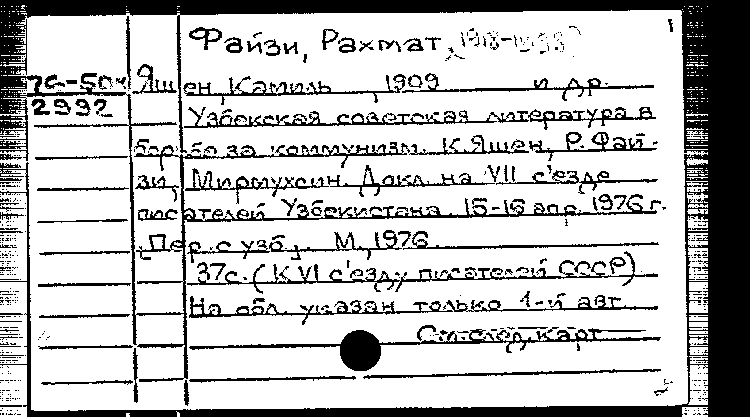 Файзи, Рахмат, (1918-1988)
76-504 Яшен, Камиль, 1909 и др.
2992 Узбекская советская литература в
борьбе за коммунизм. К. Яшен, Р. Фай-
зи, Мирмухсин. Докл. на VII съезде
писателей Узбекистана. 15-16 апр. 1976 г.
[Пер. с узб.]. М., 1976.
37с. (К VI съезду писателей СССР)
На обл. указан только 1-й авт.
См. след. карт